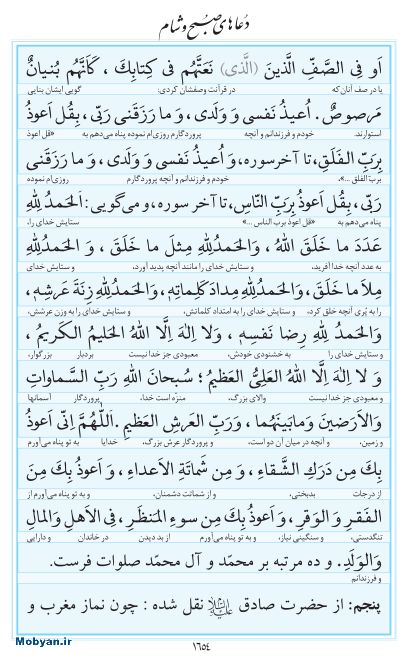 دعاهای صبح و شام
اَو فِی الصَّفِّ الَّذینَ (الَّذی) نَعَتَّهُم فی کِتابِكَ ، کَاَنَّهُم بُنیانٌ
یا در صف آنان که در قرآنت وصفشان کردی: گویی ایشان بنایی
مَرصوصٌ . اُعیذُ نَفسی وَ وَلَدی ، وَ ما رَزَقَنی رَبّی ، بِقُل اَعوذُ
استوارند. خودم و فرزندانم و آنچه پروردگارم روزی‌ام نموده پناه می‌دهم به «قل اعوذ
بِرَبِّ الفَلَقِ، تا آخر سوره، وَ اُعیذُ نَفسی وَ وَلَدی ، وَ ما رَزَقَنی
بربّ الفلق ...»، خودم و فرزندانم و آنچه پروردگارم روزی‌ام نموده
رَبّی ، بِقُل اَعوذُ بِرَبِّ النّاسِ، تا آخر سوره ، و می‌گویی : اَلحَمدُ لِلّٰهِ
پناه می‌دهم به «قل اعوذ برب الناس ...» ستایش خدای را،
عَدَدَ ما خَلَقَ اللّٰهُ ، وَ الحَمدُ لِلّٰهِ مِثلَ ما خَلَقَ ، وَ الحَمدُ لِلّٰهِ
به عدد آنچه خدا آفرید، و ستایش خدای را مانند آنچه پدید آورد، و ستایش خدای
مِلاَ ما خَلَقَ، وَ الحَمدُ لِلّٰهِ مِدادَ کَلِماتِهِ، وَ الحَمدُ لِلّٰهِ زِنَةَ عَرشِهِ،
را به پُری آنچه خلق کرد، و ستایش خدای را به امتداد کلماتش، و ستایش خدای را به وزن عرشش،
وَ الحَمدُ لِلّٰهِ رِضا نَفسِهِ ، وَ لا اِلٰهَ اِلَّا اللّٰهُ الحَلیمُ الکَریمُ ،
و ستایش خدای را به خشنودی خودش، معبودی جز خدا نیست بردبار بزرگوار،
وَ لا اِلٰهَ اِلَّا اللّٰهُ العَلِیُّ العَظیمُ ؛ سُبحانَ اللّٰهِ رَبِّ السَّماواتِ
و معبودی جز خدا نیست والای بزرگ، منزّه است خدا، پروردگار آسمانها
وَ الاَرَضینَ وَ ما بَینَهُما ، وَ رَبِّ العَرشِ العَظیمِ. اَللّٰهُمَّ اِنّی اَعوذُ
و زمین، و آنچه در میان آن دو است، و پروردگار عرش بزرگ، خدایا به تو پناه می‌آورم
بِكَ مِن دَرَكِ الشَّقاءِ ، وَ مِن شَماتَةِ الاَعداءِ ، وَ اَعوذُ بِكَ مِنَ
از درجات بدبختی، و از شماتت دشمنان، و به تو پناه می‌آورم از
الفَقرِ وَ الوَقرِ ، وَ اَعوذُ بِكَ مِن سوءِ المَنظَرِ ، فِی الاَهلِ وَ المالِ
تنگدستی، و سنگینی نیاز، و به تو پناه می‌آورم از بد دیدن در خاندان و دارایی
وَ الوَلَدِ. و ده مرتبه بر محمّد و آل محمّد صلوات فرست.
و فرزندانم
پنجم: از حضرت صادق نقل شده : چون نماز مغرب و
Mobyan.ir
۱۶۵۴